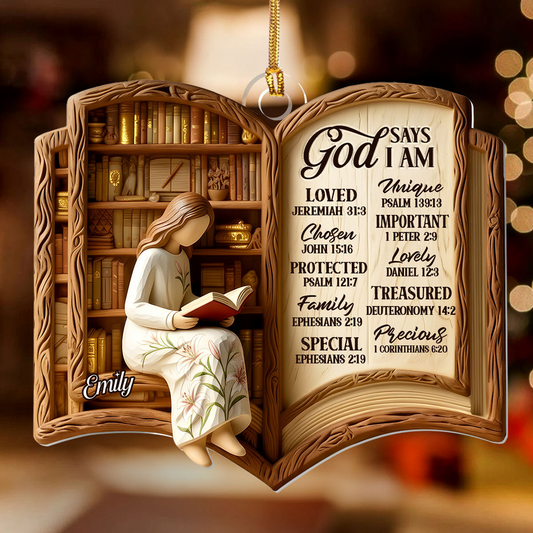 God SAYS
I AM
LOVED
JEREMIAH 31:3
Chosen
JOHN 15:16
PROTECTED
PSALM 121:7
Family
EPHESIANS 2:19
SPECIAL
EPHESIANS 2:19
Unique
PSALM 139:13
IMPORTANT
1 PETER 2:9
Lovely
DANIEL 12:3
TREASURED
DEUTERONOMY 14:2
Precious
1 CORINTHIANS 6:20
Emily